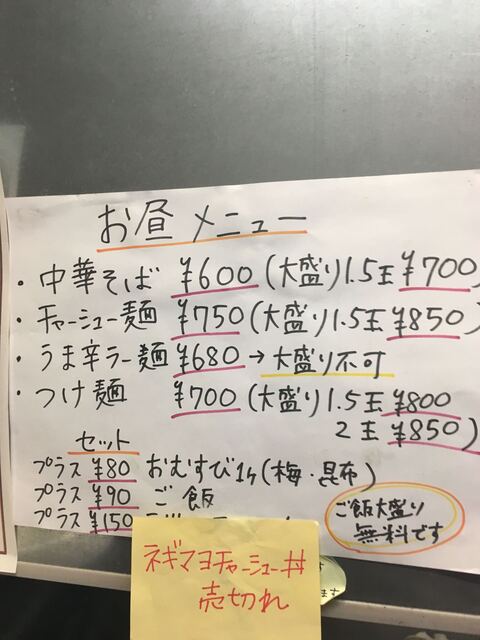 お昼メニュー
・中華そば ¥600(大盛り1.5玉¥700)
・チャーシュー麺 ¥750(大盛り1.5玉¥850)
・うま辛ラー麺 ¥680→大盛り不可
・つけ麺 ¥700(大盛り1.5玉¥800
2玉¥850)
セット
プラス ¥80 おむすび1ケ(梅・昆布)
プラス ¥90 ご飯
プラス ¥150
ご飯大盛り
無料です
ネギマヨチャーシュー丼
売切れ